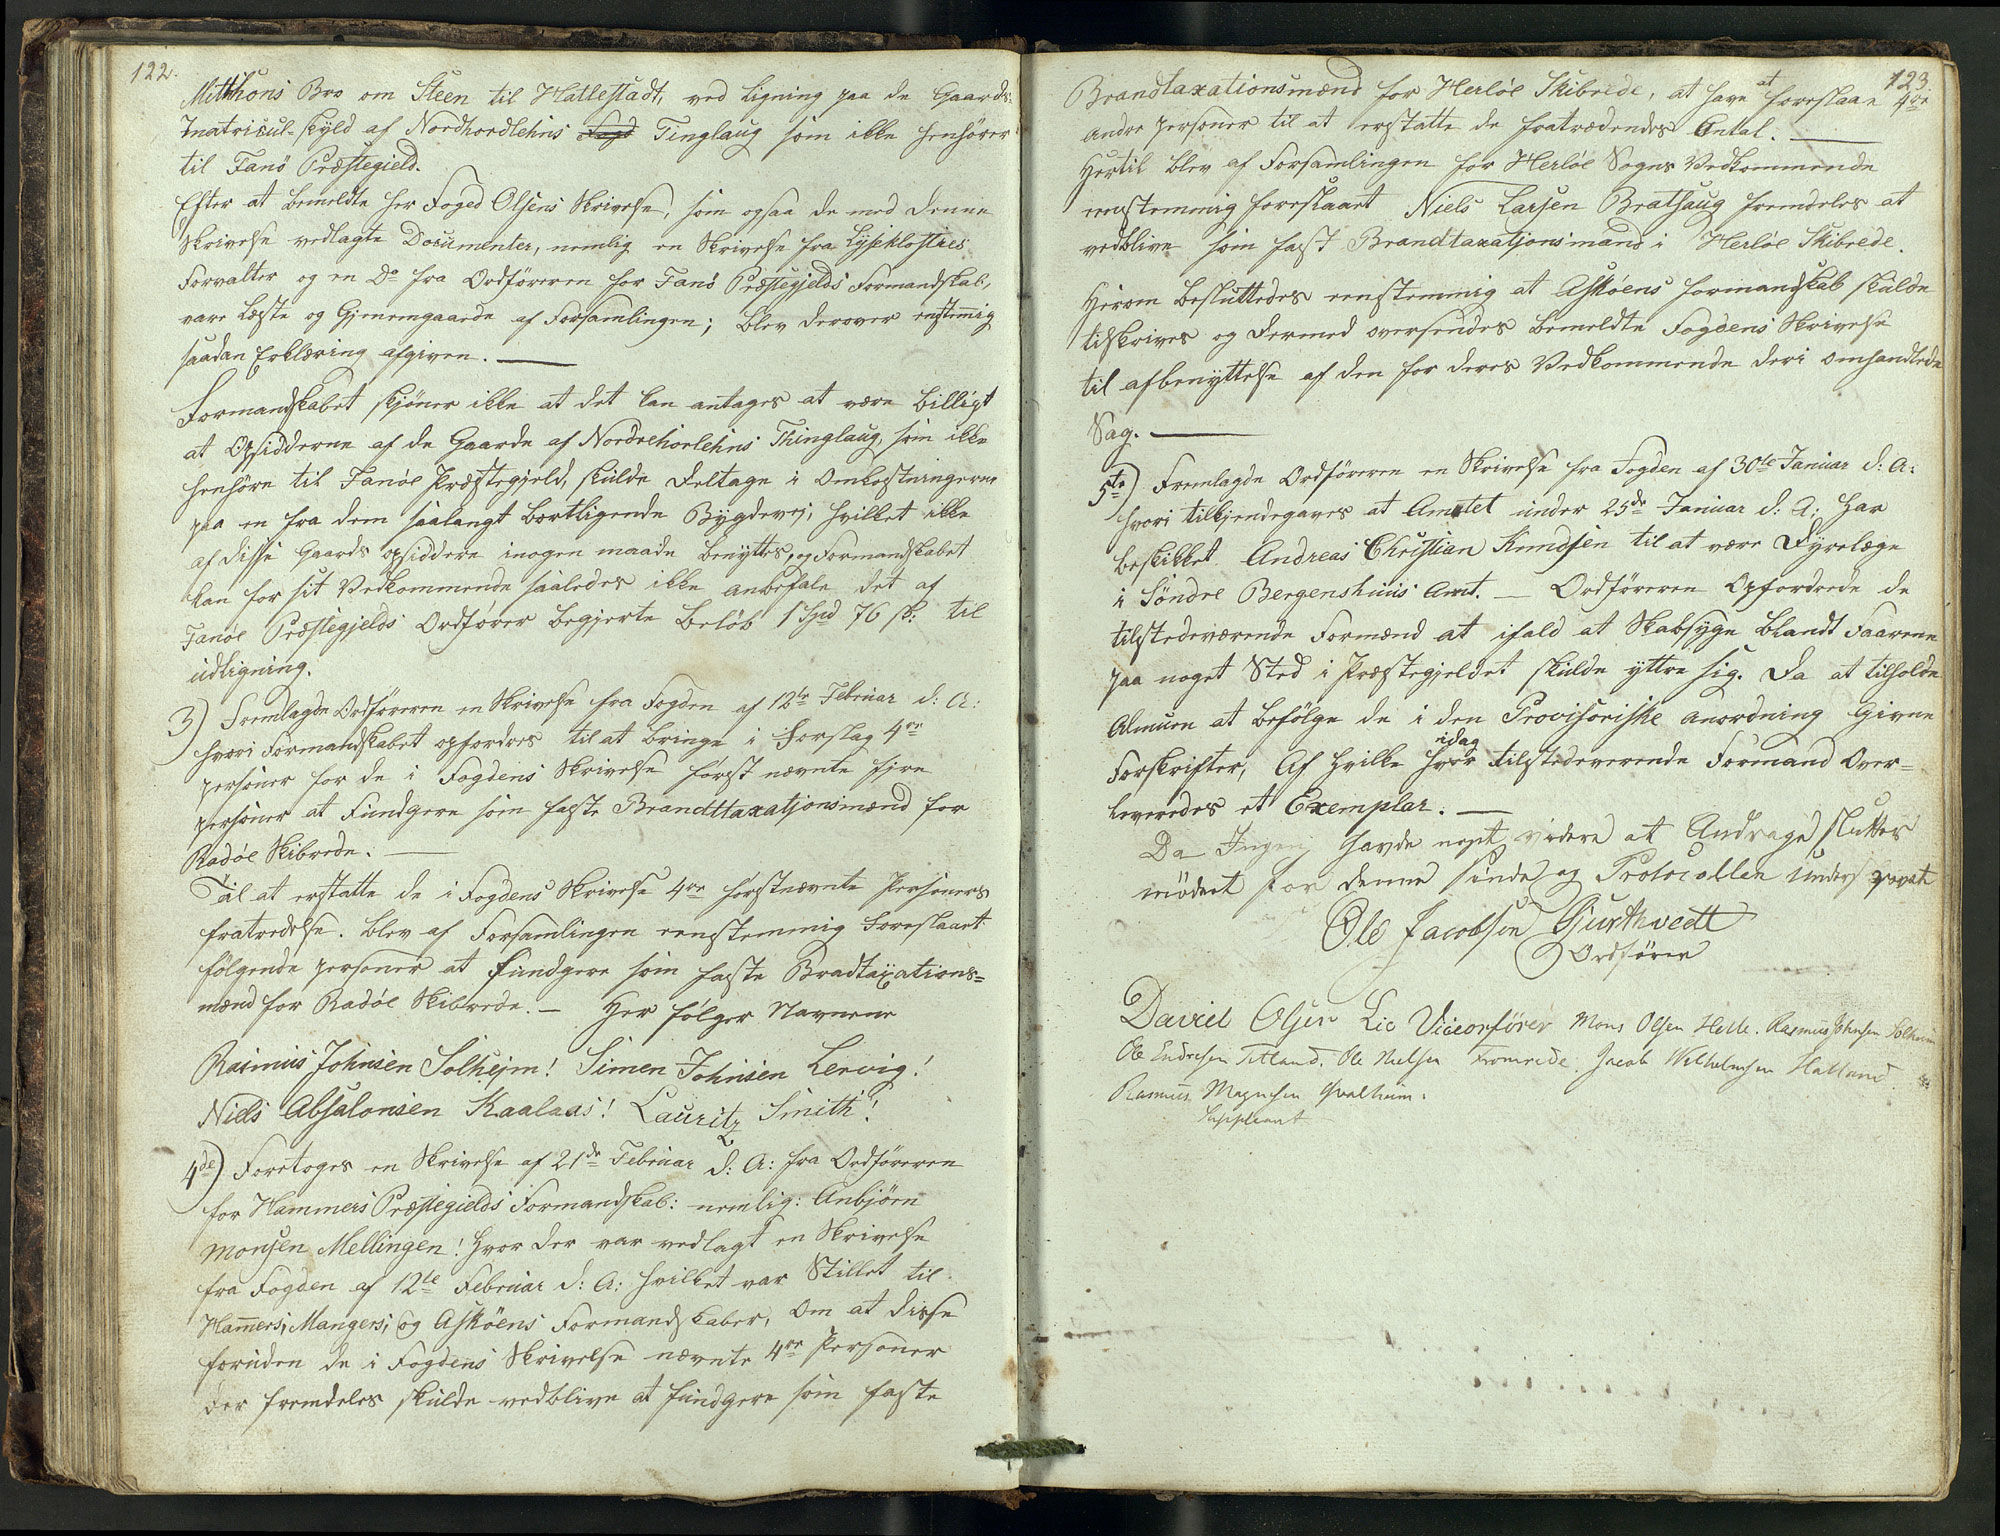 122.
Mitthons Bro om Steen til Hatlestadt, ved Ligning paa de Gaards-
Matricul-Skyld af Nordhordlehns Fogd Tinglaug som ikke henhører
til Fanö Præstegield.
Efter at bemeldte Her Foged Olsens Skrivelse, som ogsaa de med denne
Skrivelse vedlagte Documenter, nemlig en Skrivelse fra Lyseklostres
Forvalter og en Do fra Ordføreren for Fanö Præstegjelds Formandskab,
vare læste og Gjenemgaaede af Forsamlingen; blev derover enstemig
saadan Erklæring afgiven. —
Formandskabet skjöner ikke at det kan antages at være billigt
at Opsidderne af de Gaarde af Nordrehorlehns Thinglaug, som ikke
henhöre til Fanöe Præstegjeld, skulde deltage i Omkostningerne
paa en fra dem saalangt bortligende Bÿgdevej, hvilket ikke
af disse Gaards opsiddere inogen maade benyttes, og Formandskabet
kan for sit Vedkommende saaledes ikke anbefale det af
Fanöe Præstegjelds Ordfører begjerte Belöb 1 Spd 76 sk: til
udligning.
3) Fremlagde Ordføreren en Skrivelse fra Fogden af 12te Februar d: A:
hvori Formandskabet opfordres til at bringe i Forslag 4re
personer for de i Fogdens Skrivelse først nævnte fire
personer at Fundgere som faste Brandttaxatjonsmænd for
Radöe Skibrede. —
Til at erstatte de i Fogdens Skrivelse 4re førstnævnte Personers
fratredelse. blev af Forsamlingen eenstemmig Foreslaaet
følgende personer at fundgere som faste Bradtaxations-
mænd for Radöe Skibrede. — Her følger Navnene
Rasmus Johnsen Solhejm! Simen Johnsen Lervig!
Niels Absalonsen Kaalaas! Lauritz Smith!
4de) Foretoges en Skrivelse af 21de Februar d: A: fra Ordføreren
for Hammers Præstegields Formandskab: nemlig: Anbjörn
Monsen Mellingen! hvor der var vedlagt en Skrivelse
fra Fogden af 12te Februar d: A: hvilket var Stillet til
Hamers, Mangers, og Askøens Formandskaber, Om at disse
foruden de i Fogdens Skrivelse nævnte 4re Personer
der fremdeles skulde vedblive at fundgere som faste
123.
Brandtaxationsmænd for Herløe Skibrede, at have at foreslaae 4re
andre personer til at erstatte de fratrædendes Antal. —
Hertil blev af Forsamlingen for Herløe Sogns Vedkommende
eenstemmig foreslaaet Niels Larsen Brathaug fremdeles at
vedblive som fast Brandtaxatjonsmand i Herløe Skibrede.
Herom besluttedes eenstemmig at Askøens Formandskab skulde
tilskrives og dermed oversendes bemeldte Fogdens Skrivelse
til afbenyttelse af den for deres Vedkommende deri omhandlede
Sag. —
5te) Fremlagde Ordføreren en Skrivelse fra Fogden af 30te Januar d: A:
hvori tilkjendegaves at Amtet under 25de Januar d: A: har
beskikket Andreas Christian Knudsen til at være Dÿrelæge
i Søndre Bergenshuus Amt. — Ordføreren Opfordrede de
tilstedeværende Formænd at ifald at Skabsyge blandt Faarene
paa noget Sted i Præstegjeldet skulde yttre sig. Da at tilholde
Almuen at befölge de i den Provisoriske anordning Givne
Forskrifter, Af hvilke hver idag tilstedeverende Formand Over-
leveredes et Exemplar. —
Da Ingen havde noget videre at Andrage sluttes
mödet for denne sinde og Protocollen underskrevet
Ole Jacobsen Gjurthvedt
Ordfører
David Olsen Lie Viceorfører Mons Olsen Helle. Rasmus Johnsen Solheim
Ole Endresen Titland. Ole Nielsen Fromrede. Jacob Wilhelmsen Hatland
Rasmus Magnesen Qvalheim.
Suppleant